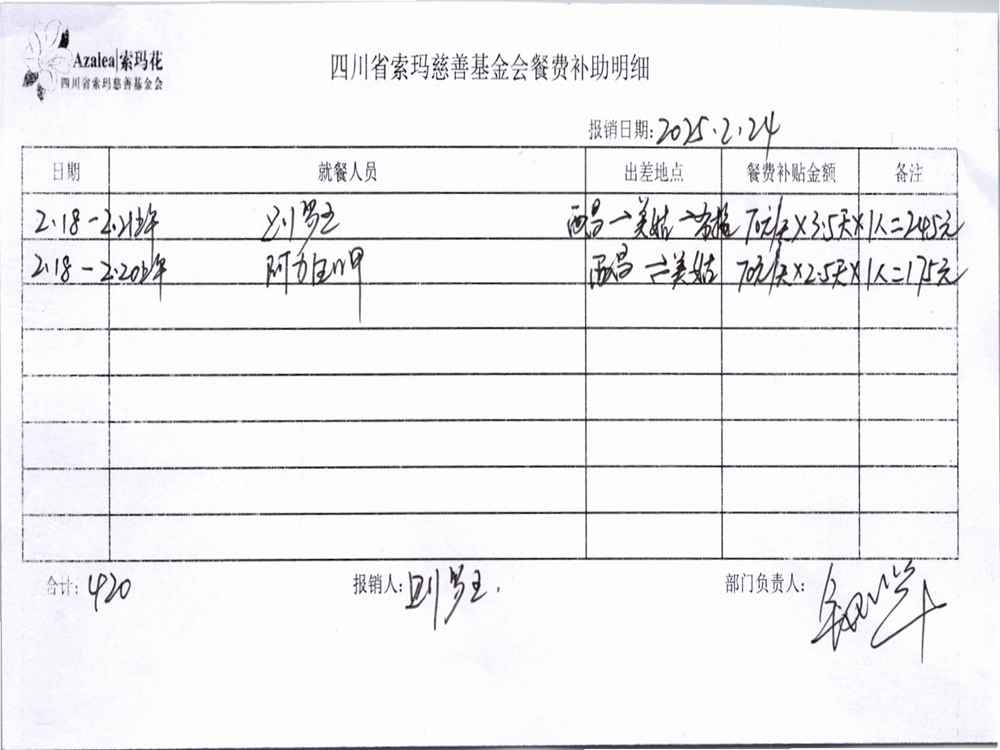 Azalea|索玛花
四川省索玛慈善基金会
四川省索玛慈善基金会餐费补助明细
报销日期:2025.2.24
日期 就餐人员 出差地点 餐费补贴金额 备注
2.18-2.21上午 罗王 西昌→美姑→ 70元/天×3.5天×1人=245元
2.18-2.20上午 阿 西昌⇌美姑 70元/天×2.5天×1人=175元
合计:420 报销人: 罗王. 部门负责人: